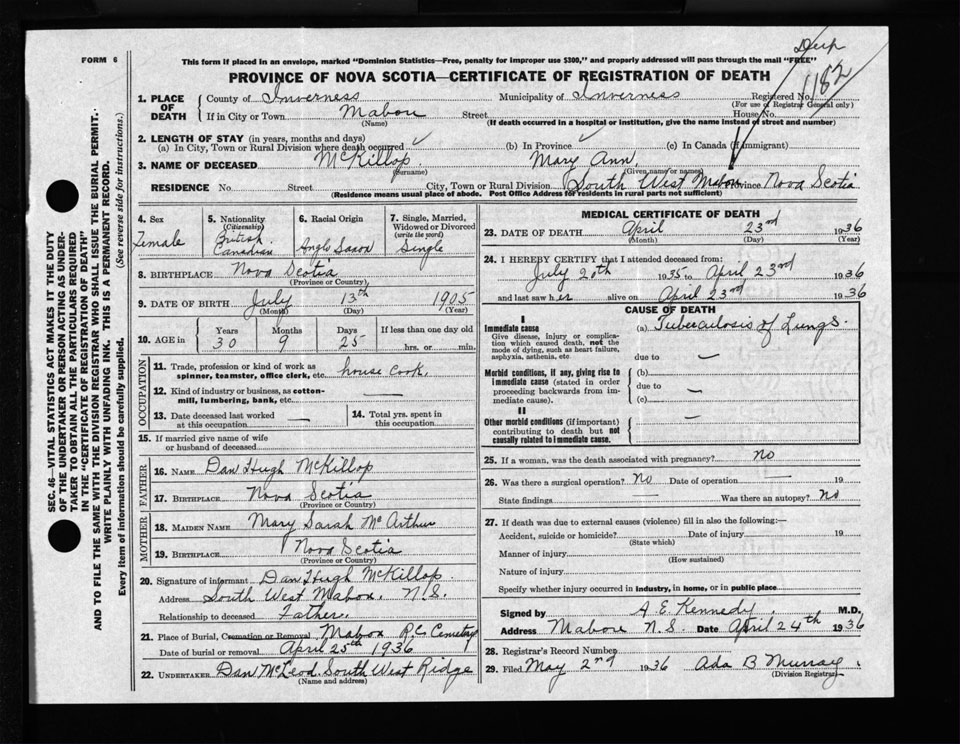 FORM 6
This form if placed in an envelope, marked "Dominion Statistics—Free, penalty for improper use $300," and properly addressed will pass through the mail "FREE"
Dup
182
PROVINCE OF NOVA SCOTIA—CERTIFICATE OF REGISTRATION OF DEATH
1. PLACE OF DEATH County of Inverness Municipality of Inverness Registered No.
(For use of Registrar General only)
If in City or Town Mabou Street House No.
(Name) (If death occurred in a hospital or institution, give the name instead of street and number)
2. LENGTH OF STAY (in years, months and days)
(a) In City, Town or Rural Division where death occurred ✓ (b) In Province ✓ (c) In Canada (if immigrant)
3. NAME OF DECEASED McKillop Mary Ann
(Surname) (Given name or names)
RESIDENCE No. Street City, Town or Rural Division South West Mabou Province Nova Scotia
(Residence means usual place of abode. Post Office Address for residents in rural parts not sufficient)
4. Sex
Female
5. Nationality (Citizenship)
British Canadian
6. Racial Origin
Anglo Saxon
7. Single, Married, Widowed or Divorced (write the word)
Single
8. BIRTHPLACE Nova Scotia
(Province or Country)
9. DATE OF BIRTH July 13th 1905
(Month) (Day) (Year)
10. AGE in Years Months Days If less than one day old
30 9 25 hrs. or min.
OCCUPATION
11. Trade, profession or kind of work as spinner, teamster, office clerk, etc. house cook.
12. Kind of industry or business, as cotton-mill, lumbering, bank, etc. —
13. Date deceased last worked at this occupation —
14. Total yrs. spent in this occupation
15. If married give name of wife or husband of deceased
FATHER
16. NAME Dan Hugh McKillop
17. BIRTHPLACE Nova Scotia
(Province or Country)
MOTHER
18. MAIDEN NAME Mary Sarah McArthur
19. BIRTHPLACE Nova Scotia
(Province or Country)
20. Signature of informant Dan Hugh McKillop.
Address South West Mabou. N.S.
Relationship to deceased Father.
21. Place of Burial, Cremation or Removal Mabou R.C. Cemetery
Date of burial or removal April 25th 1936
22. UNDERTAKER Dan McLeod. South West Ridge
(Name and address)
MEDICAL CERTIFICATE OF DEATH
23. DATE OF DEATH April 23rd 1936
(Month) (Day) (Year)
24. I HEREBY CERTIFY that I attended deceased from:
July 20th 1935 to April 23rd 1936
and last saw her alive on April 23rd 1936
CAUSE OF DEATH
I
Immediate cause
Give disease, injury or complication which caused death, not the mode of dying, such as heart failure, asphyxia, asthenia, etc
(a) Tubercilosis of Lungs.
due to —
Morbid conditions, if any, giving rise to immediate cause (stated in order proceeding backwards from immediate cause).
(b)
due to —
(c)
II
Other morbid conditions (if important) contributing to death but not causally related to immediate cause.
—
25. If a woman, was the death associated with pregnancy? no
26. Was there a surgical operation? No Date of operation — 19
State findings — Was there an autopsy? No
27. If death was due to external causes (violence) fill in also the following:—
Accident, suicide or homicide? Date of injury 19
(State which)
Manner of injury
(How sustained)
Nature of injury
Specify whether injury occurred in industry, in home, or in public place
Signed by A E. Kennedy. M.D.
Address Mabou N.S. Date April 24th 1936
28. Registrar's Record Number
29. Filed May 2nd 1936 Ada B Murray.
(Division Registrar)
SEC. 46—VITAL STATISTICS ACT MAKES IT THE DUTY
OF THE UNDERTAKER OR PERSON ACTING AS UNDER-
TAKER TO OBTAIN ALL THE PARTICULARS REQUIRED
IN THE "CERTIFICATE OF REGISTRATION OF DEATH"
AND TO FILE THE SAME WITH THE DIVISION REGISTRAR WHO SHALL ISSUE THE BURIAL PERMIT.
WRITE PLAINLY WITH UNFADING INK. THIS IS A PERMANENT RECORD.
Every item of information should be carefully supplied. (See reverse side for instructions.)